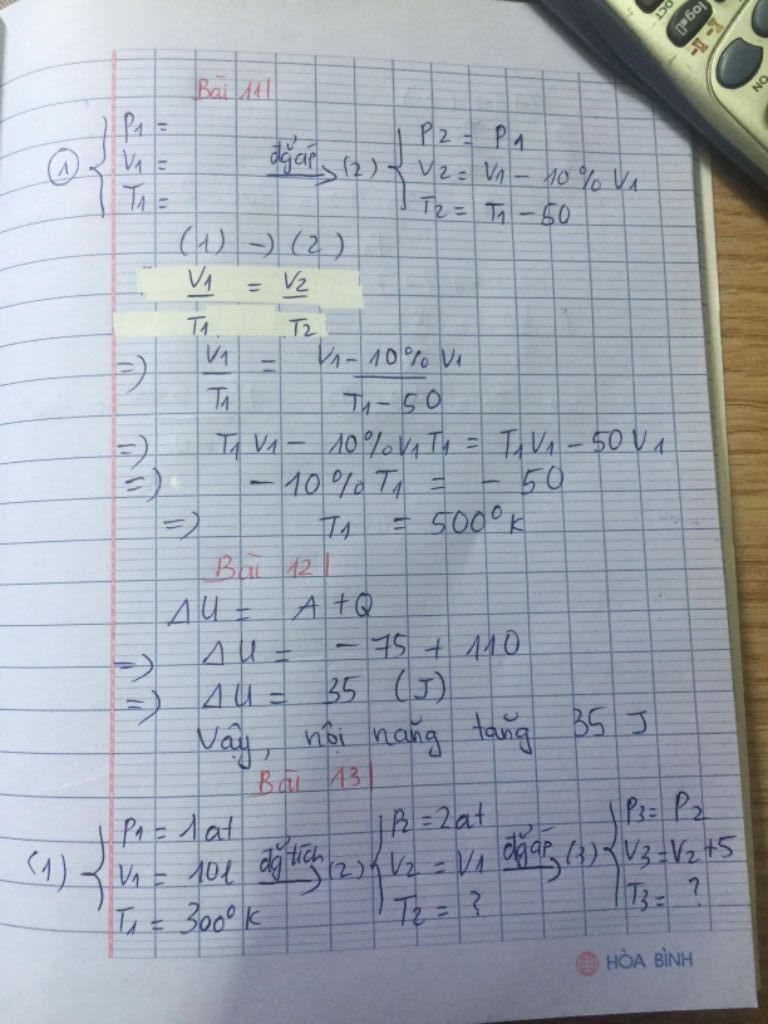 Bài 11|
① P1 =
V1 =
T1 =
đg áp (2)
P2 = P1
V2 = V1 - 10% V1
T2 = T1 - 50
(1) → (2)
V1/T1 = V2/T2
=) V1/T1 = V1 - 10% V1/T1 - 50
=) T1V1 - 10%V1T1 = T1V1 - 50V1
=) - 10% T1 = - 50
=) T1 = 500°K
Bài 12|
ΔU = A + Q
=) ΔU = - 75 + 110
=) ΔU = 35 (J)
Vậy, nội năng tăng 35 J
Bài 13|
(1) P1 = 1at
V1 = 10l
T1 = 300°K
đg tích (2)
P2 = 2at
V2 = V1
T2 = ?
đg áp (3)
P3 = P2
V3 = V2 + 5
T3 = ?
HÒA BÌNH
OCT
log
ON